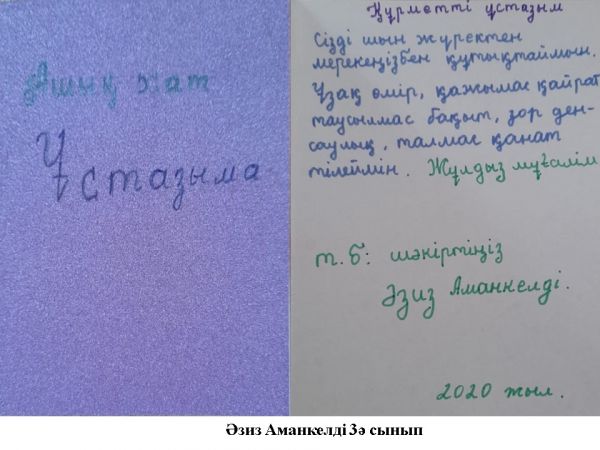 Ашық хат
Ұстазыма
Құрметті ұстазым
Сізді шын жүректен
мерекеңізбен құтықтаймын.
Ұзақ өмір, қажымас қайрат
таусылмас бақыт, зор ден-
саулық, талмас қанат
тілеймін. Жұлдыз мұғалім
т.б: шәкіртіңіз
Әзиз Аманкелді.
2020 жыл.
Әзиз Аманкелді 3ә сынып